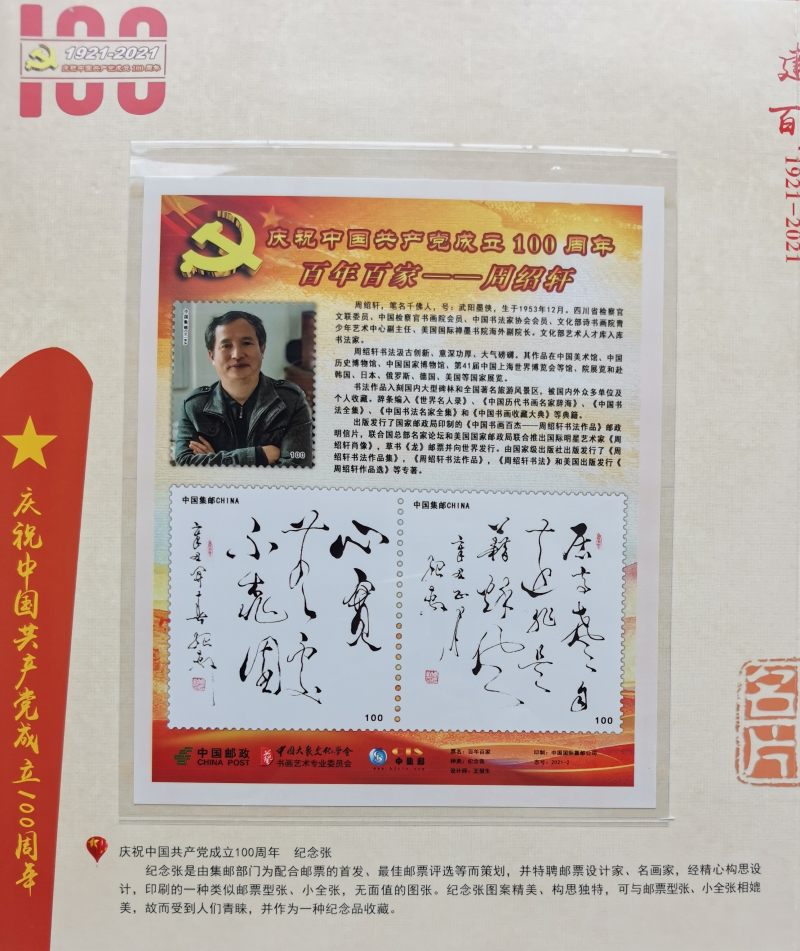 100
1921-2021
庆祝中国共产党成立100周年
建
百
1921-2021
庆祝中国共产党成立100周年
百年百家——周绍轩
中国集邮
100
周绍轩，笔名千佛人，号：武阳墨侠，生于1953年12月。四川省检察官
文联委员、中国检察官书画院会员、中国书法家协会会员、文化部诗书画院青
少年艺术中心副主任、美国国际禅墨书院海外副院长。文化部艺术人才库入库
书法家。
周绍轩书法汲古创新、意深功厚、大气磅礴。其作品在中国美术馆、中国
历史博物馆、中国国家博物馆、第41届中国上海世界博览会等馆、院展览和赴
韩国、日本、俄罗斯、德国、美国等国家展览。
书法作品入刻国内大型碑林和全国著名旅游风景区，被国内外众多单位及
个人收藏。辞条编入《世界名人录》、《中国历代书画名家辞海》、《中国书
法全集》、《中国书法名家全集》和《中国书画收藏大典》等典籍。
出版发行了国家邮政局印制的《中国书画百杰——周绍轩书法作品》邮政
明信片，联合国总部名家论坛和美国国家邮政局联合推出国际明星艺术家《周
绍轩肖像》，草书《龙》邮票并向世界发行。由国家级出版社出版发行了《周
绍轩书法作品集》，《周绍轩书法作品》，《周绍轩书法》和美国出版发行《
周绍轩作品选》等专著。
中国集邮CHINA
心宽
无处
不
园
100
中国集邮CHINA
居
自
是
100
中国邮政
CHINA POST
中国大众文化学会
书画艺术专业委员会
CIS
中集邮
票名：百年百家
印制：中国国际集邮公司
志号：2021-2
庆祝中国共产党成立100周年
名片
庆祝中国共产党成立100周年 纪念张
纪念张是由集邮部门为配合邮票的首发、最佳邮票评选等而策划，并特聘邮票设计家、名画家，经精心构思设
计，印刷的一种类似邮票型张、小全张，无面值的图张。纪念张图案精美、构思独特，可与邮票型张、小全张相媲
美，故而受到人们青睐，并作为一种纪念品收藏。